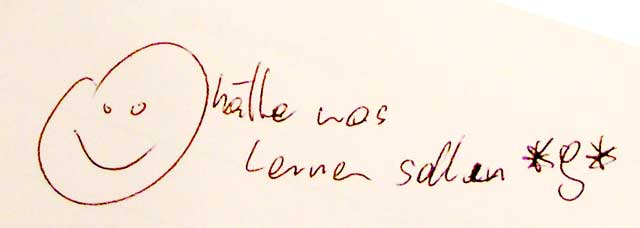 hätte was
lernen sollen *g*